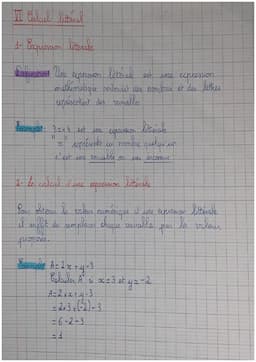 II Calcul littéral
1- Expression littérale
Définition: Une expression littérale est une expression
mathématique contenant des nombres et des lettres
représentant des nombres
Exemple: 3x+3 est une expression littérale
"x" représente un nombre quelconque
c'est une variable ou une inconnue
2- Le calcul d'une expression littérale
Pour obtenir la valeur numérique d'une expression littérale
il suffit de remplacer chaque variable par la valeur
proposée.
Exemple A=2x+y-3
Calculer A si x=3 et y=-2
A=2×x+y-3
=2×3+(-2)-3
=6-2-3
=1